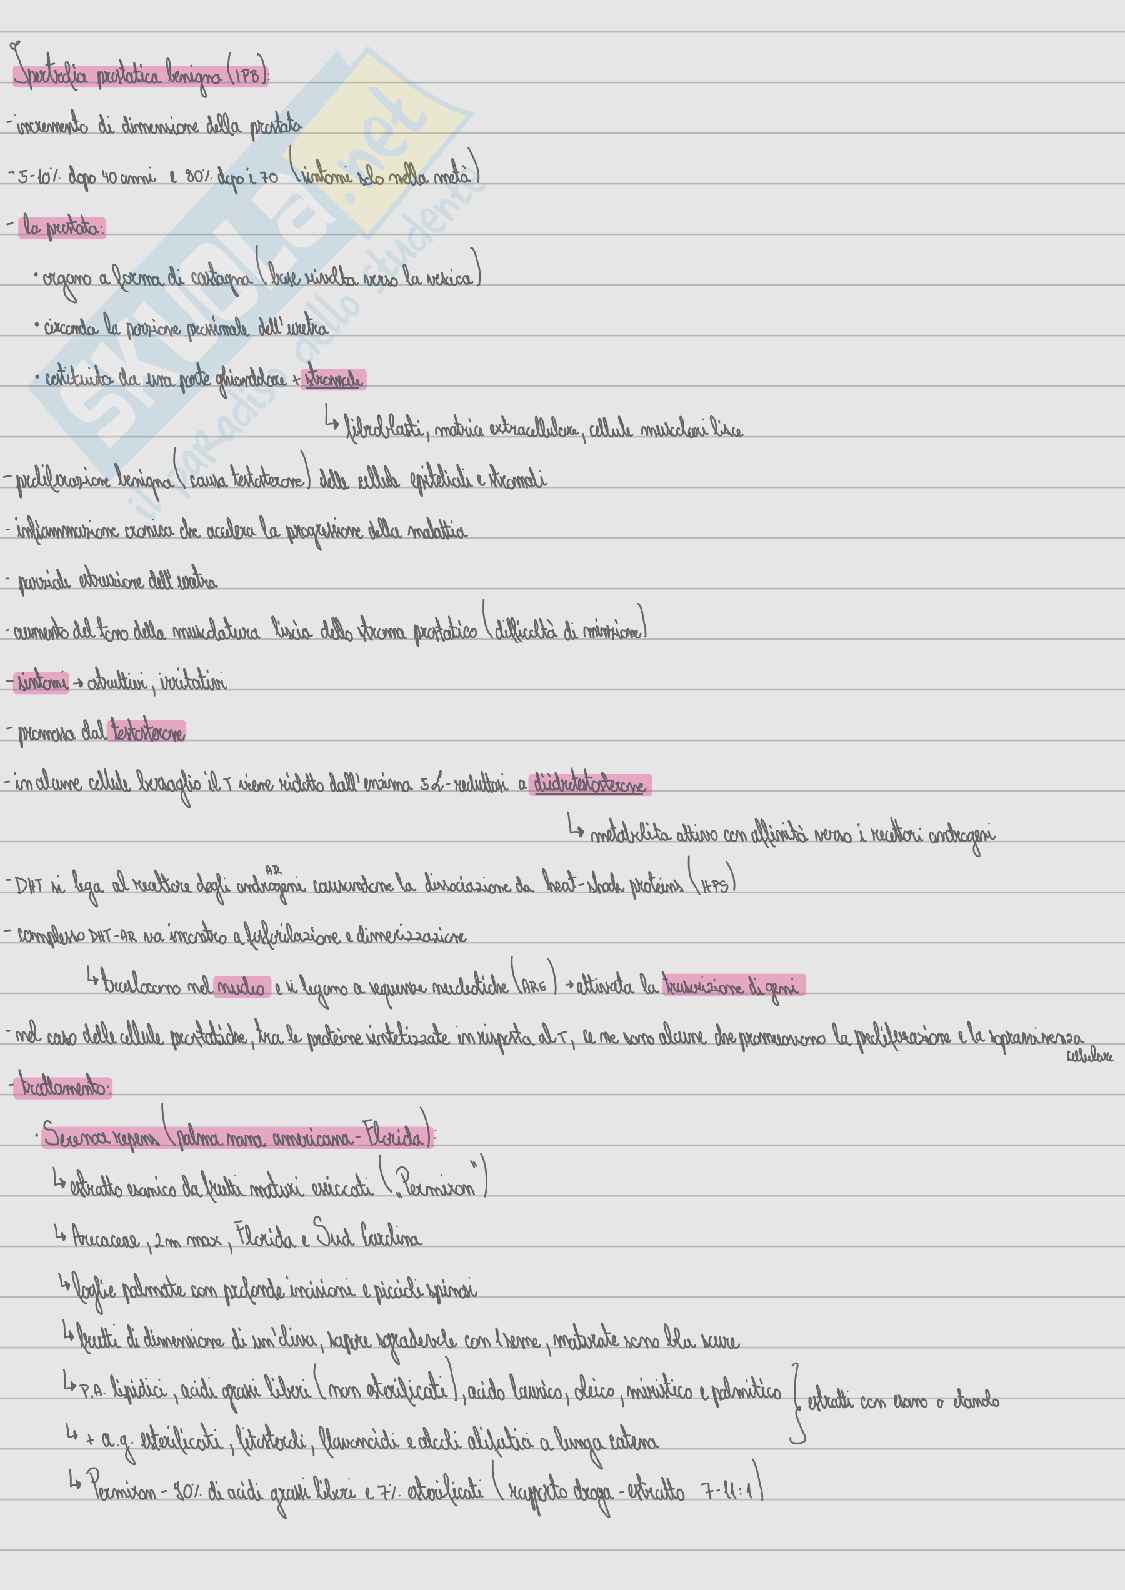 Ipertrofia prostatica benigna (IPB):
- incremento di dimensione della prostata
- 5-10% dopo 40 anni e 80% dopo i 70 (sintomi solo nella metà)
- la prostata:
• organo a forma di castagna (base rivolta verso la vescica)
• circonda la porzione prossimale dell'uretra
• costituita da una parte ghiandolare + stromale
↳ fibroblasti, matrice extracellulare, cellule muscolari lisce
- proliferazione benigna (causa testosterone) delle cellule epiteliali e stromali
- infiammazione cronica che accelera la progressione della malattia
- parziale ostruzione dell'uretra
- aumento del tono della muscolatura liscia dello stroma prostatico (difficoltà di minzione)
- sintomi → ostruttivi, irritativi
- promossa dal testosterone
- in alcune cellule bersaglio il T viene ridotto dall'enzima 5α-reduttasi a diidrotestosterone
↳ metabolita attivo con affinità verso i recettori androgeni
- DHT si lega al recettore degli androgeni AR causandone la dissociazione da heat-shock proteins (HPS)
- complesso DHT-AR va incontro a fosforilazione e dimerizzazione
↳ traslocano nel nucleo e si legano a sequenze nucleotidiche (ARE) → attivata la trascrizione di geni
- nel caso delle cellule prostatiche, tra le proteine sintetizzate in risposta al T, ce ne sono alcune che promuovono la proliferazione e la sopravvivenza
cellulare
- trattamento:
• Serenoa repens (palma nana americana - Florida):
↳ estratto esanico da frutti maturi essiccati („Permixon")
↳ Arecaceae, 2m max, Florida e Sud Carolina
↳ foglie palmate con profonde incisioni e piccioli spinosi
↳ frutti di dimensione di un'oliva, sapore sgradevole con 1 seme, maturate sono blu scure
↳ P.A. lipidici, acidi grassi liberi (non esterificati), acido laurico, oleico, miristico e palmitico } estratti con esano o etanolo
↳ + a.g. esterificati, fitosteroli, flavonoidi e alcoli alifatici a lunga catena
↳ Permixon - 80% di acidi grassi liberi e 7% esterificati (rapporto droga - estratto 7-11:1)
SKUOLA.net
il paradiso dello studente